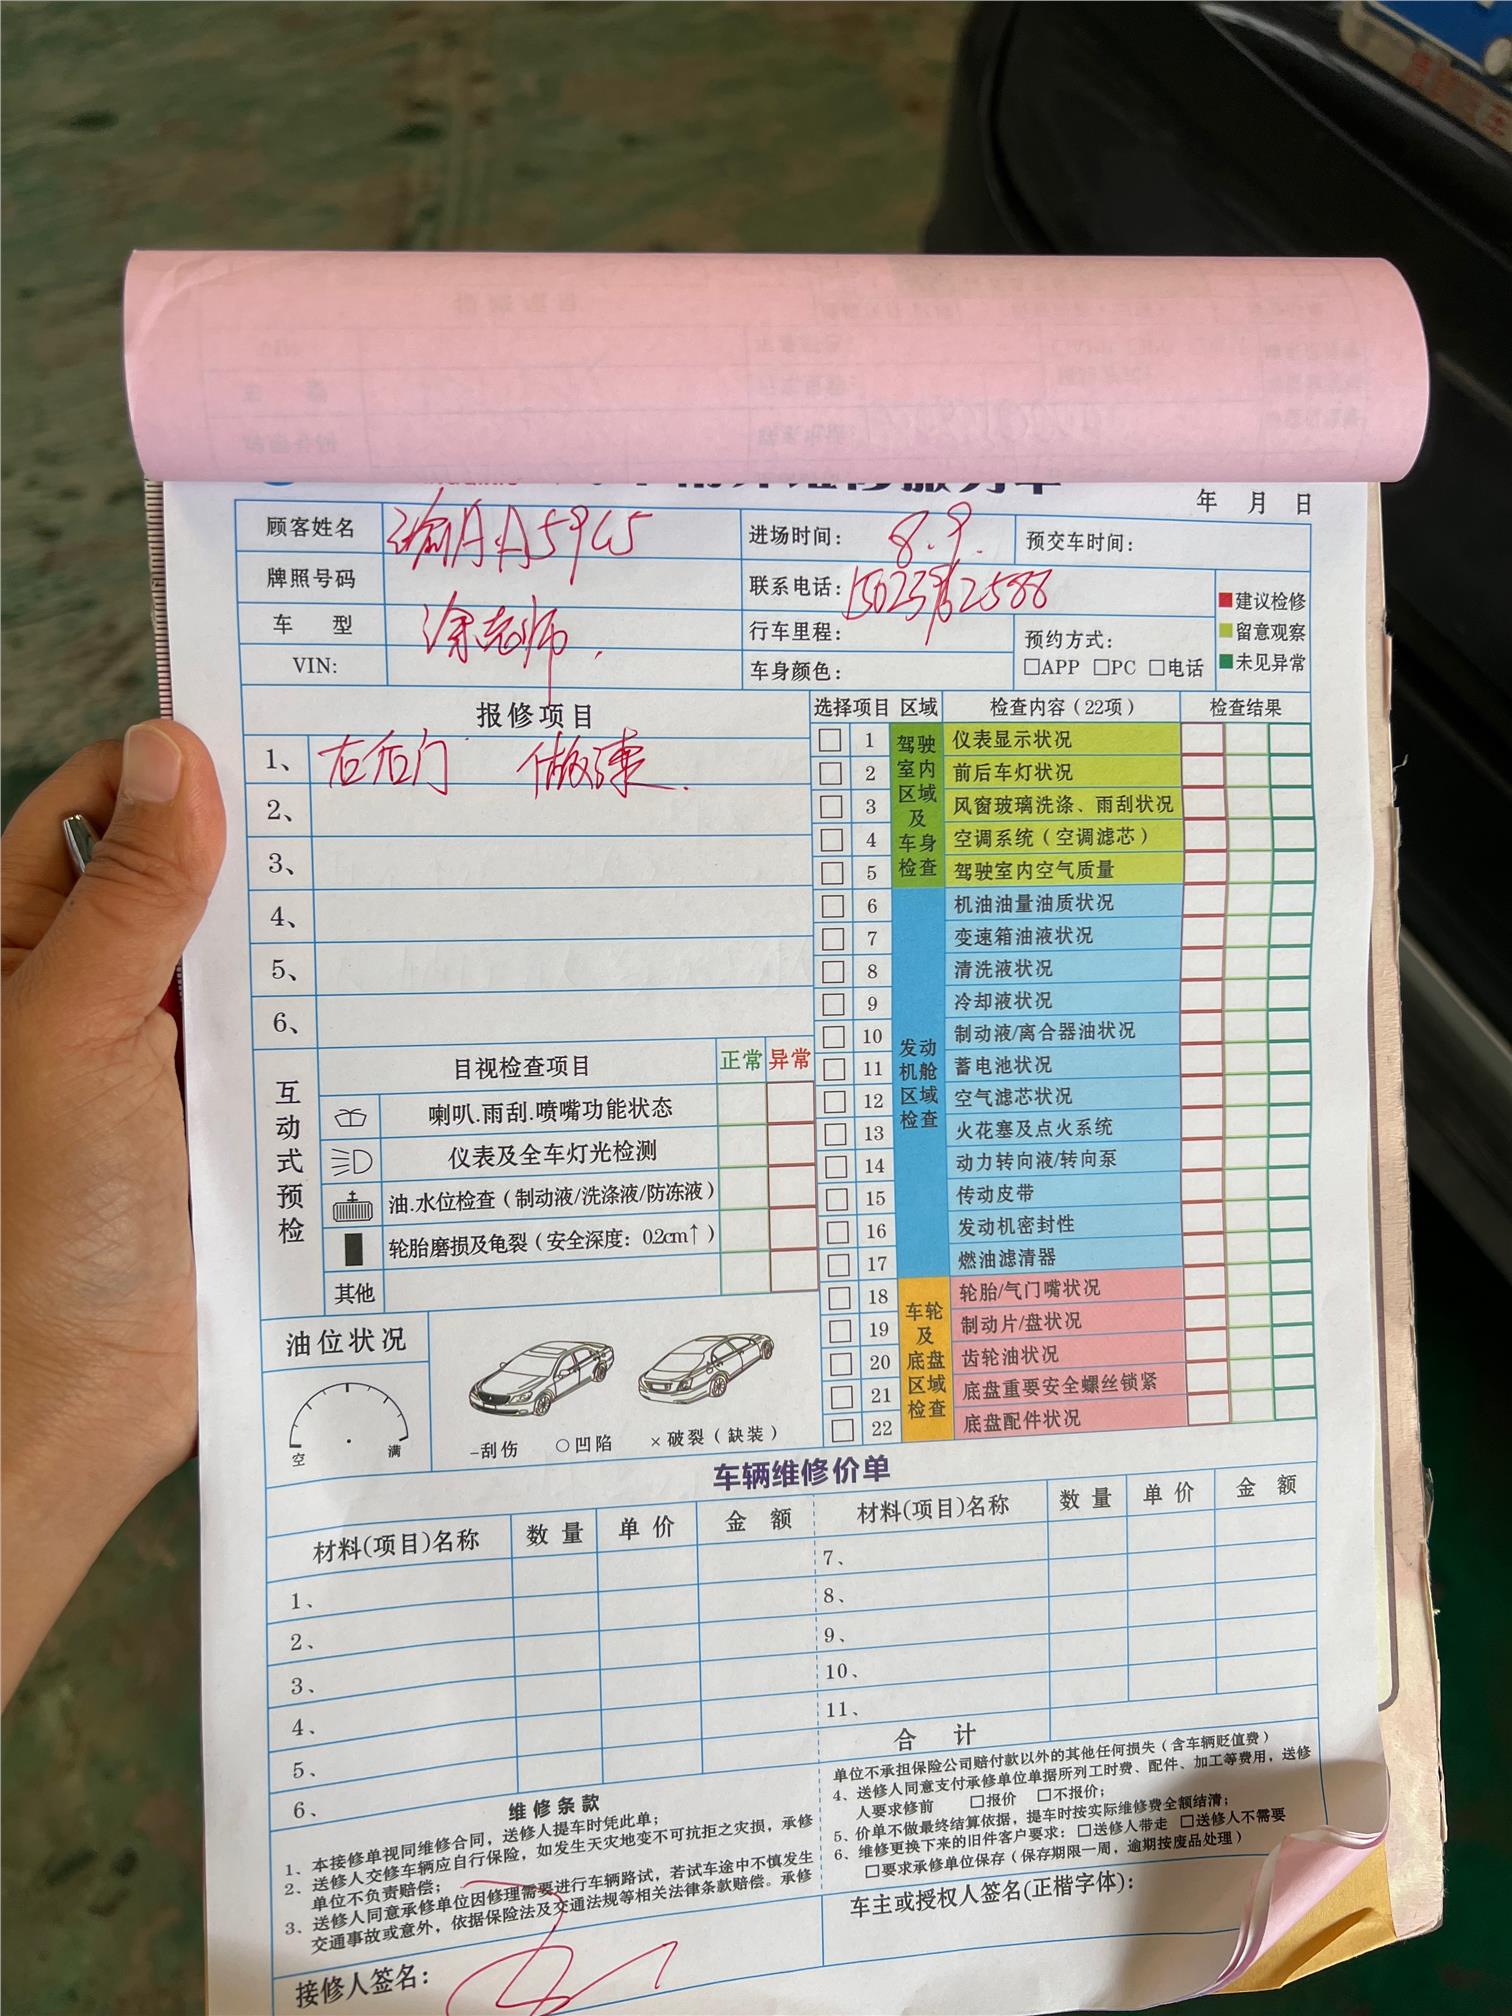 年 月 日
顾客姓名 渝A·A59C5 进场时间： 8.9. 预交车时间：
牌照号码 联系电话：
车 型 涂老师. 行车里程： 预约方式：
VIN: 车身颜色： □APP □PC □电话
建议检修
留意观察
未见异常
报修项目
1、 右后门 做漆.
2、
3、
4、
5、
6、
选择项目 区域 检查内容（22项） 检查结果
驾驶室内区域及车身检查
1 仪表显示状况
2 前后车灯状况
3 风窗玻璃洗涤、雨刮状况
4 空调系统（空调滤芯）
5 驾驶室内空气质量
发动机舱区域检查
6 机油油量油质状况
7 变速箱油液状况
8 清洗液状况
9 冷却液状况
10 制动液/离合器油状况
11 蓄电池状况
12 空气滤芯状况
13 火花塞及点火系统
14 动力转向液/转向泵
15 传动皮带
16 发动机密封性
17 燃油滤清器
车轮及底盘区域检查
18 轮胎/气门嘴状况
19 制动片/盘状况
20 齿轮油状况
21 底盘重要安全螺丝锁紧
22 底盘配件状况
互动式预检
目视检查项目 正常 异常
喇叭.雨刮.喷嘴功能状态
仪表及全车灯光检测
油.水位检查（制动液/洗涤液/防冻液）
轮胎磨损及龟裂（安全深度：0.2cm↑）
其他
油位状况
空 满
-刮伤 ○凹陷 ×破裂（缺装）
车辆维修价单
材料(项目)名称 数量 单价 金额 材料(项目)名称 数量 单价 金额
1、 7、
2、 8、
3、 9、
4、 10、
5、 11、
6、 合 计
维修条款
1、本接修单视同维修合同，送修人提车时凭此单；
2、送修人交修车辆应自行保险，如发生天灾地变不可抗拒之灾损，承修
单位不负责赔偿；
3、送修人同意承修单位因修理需要进行车辆路试，若试车途中不慎发生
交通事故或意外，依据保险法及交通法规等相关法律条款赔偿。承修
单位不承担保险公司赔付款以外的其他任何损失（含车辆贬值费）
4、送修人同意支付承修单位单据所列工时费、配件、加工等费用，送修
人要求修前 □报价 □不报价；
5、价单不做最终结算依据，提车时按实际维修费全额结清；
6、维修更换下来的旧件客户要求：□送修人带走 □送修人不需要
□要求承修单位保存（保存期限一周，逾期按废品处理）
接修人签名：
车主或授权人签名(正楷字体)：